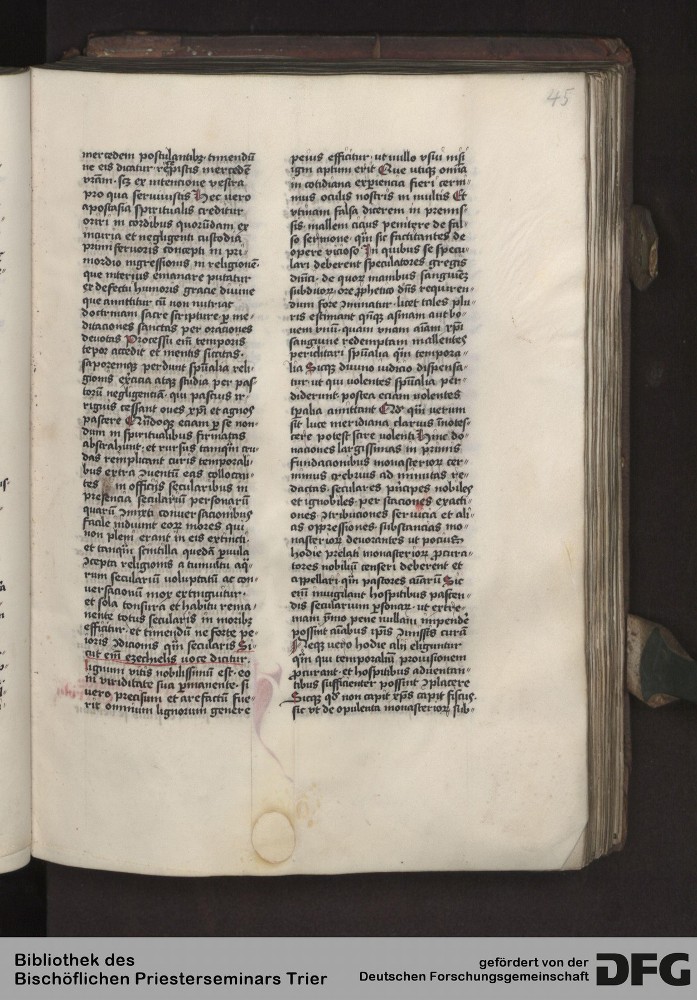 45
mercedem postulantibꝫ timendū
ne eis dicatur recepistis mercedē
vram̄ scꝫ ex intencione vestra
pro qua seruiuistis Hec vero
apostasia spiritualis creditur
oriri in cordibus quorūdam ex
incuria et negligenti custodia
primi feruoris concepti in pri-
mordio ingressionis in religionē
que interius emanare putatur
ex defectu humoris gracie diuine
que amittitur cū non nutriat
doctrinam sacre scripture ꝑ me-
ditaciones sanctas per oraciones
deuotas Processu eīm temporis
tepor accedit et mentis siccitas
saporemqꝫ perdunt spūalia reli-
gionis exercicia atqꝫ studia per pas
torū negligenciā qui pastus ir-
riguis cessant oues xpī et agnos
pascere Nūdoqꝫ eciam ꝑ se non-
dum in spiritualibus firmatos
abstrahunt et rursus tamqm̄ cru-
das remplicant curis temporali-
bus extra Juentū eas collocan-
tes in officijs secularibus in
presencia seculariū personarū
quarū Jmixti conuersacionibus
facile induunt eorꝝ mores qui
non pleni erant in eis extincti
et tanqm̄ scintilla quedā ꝑuula
Jcepta religionis a tumultu aq̄-
rum seculariū voluptatū ac con-
uersacionū mox extinguitur
et sola tonsura et habitu rema-
nente totus secularis in moribꝫ
efficitur et timendū ne forte pe-
ioris Jdicionis qm̄ secularis Si-
cut eīm ezechielis uoce dicitur
lignum vitis nobilissimū est eo
in viriditate sua ꝑmanente si
uero precisum et arefactū fue-
rit omnium lignorum genere
peius efficitur ut nullo vsui nisi
igni aptum erit Que vtiqꝫ omnia
in cotidiana experiencia fieri cerni-
mus oculis nostris in multis Et
vtinam falsa dicerem in premis-
sis mallem cicius penitere de fal-
so sermone qm̄ sic factitantes de
opere vicioso In quibus se specu-
lari deberent speculatores gregis
diuīci de quorꝝ manibus sanguinē
subditorꝝ ore ꝓphetico dn̄s requiren-
dum fore Jminatur licet tales plu-
ris estimant qn̄qꝫ asinam aut bo-
uem vnū quam vnam aīam xpī
sanguine redemptam mallentes
periclitari spūalia qm̄ tempora-
lia Sicqꝫ diuino iudicio dispensa-
tur ut qui volentes spūalia per-
diderunt postea eciam nolentes
tꝑalia amittant Qd̄ qm̄ uerum
sit luce meridiana clarius innotes-
cere potest scire volenti Hinc do-
naciones largissimas in primis
fundacionibus monasteriorꝝ cer-
nimus crebrius ad minutas re-
dactas seculares prīcipes nobiles
et ignobiles per staciones exacti-
ones Jtribuciones seruicia et ali-
as oppressiones substancias mo-
nasteriorꝝ deuorantes ut pocius
hodie prelati monasteriorꝝ ꝓcura-
tores nobiliū censeri deberent et
appellari qm̄ pastores aīarū Sic
eīm inuigilant hospitibus pascen-
dis secularium ꝑsonarꝝ ut extre-
mam ymo pene nullam impendē
possint aīabus ipīs Jmissis curā
Neqꝫ vero hodie alij eliguntur
qm̄ qui temporaliū prouisionem
ꝓcurant et hospitibus aduentan-
tibus sufficienter possint Jplacere
Sicqꝫ qd̄ non capit xpūs capit fiscus
sic vt de opulenta monasteriorꝝ sub-
Bibliothek des
Bischöflichen Priesterseminars Trier
gefördert von der
Deutschen Forschungsgemeinschaft
DFG